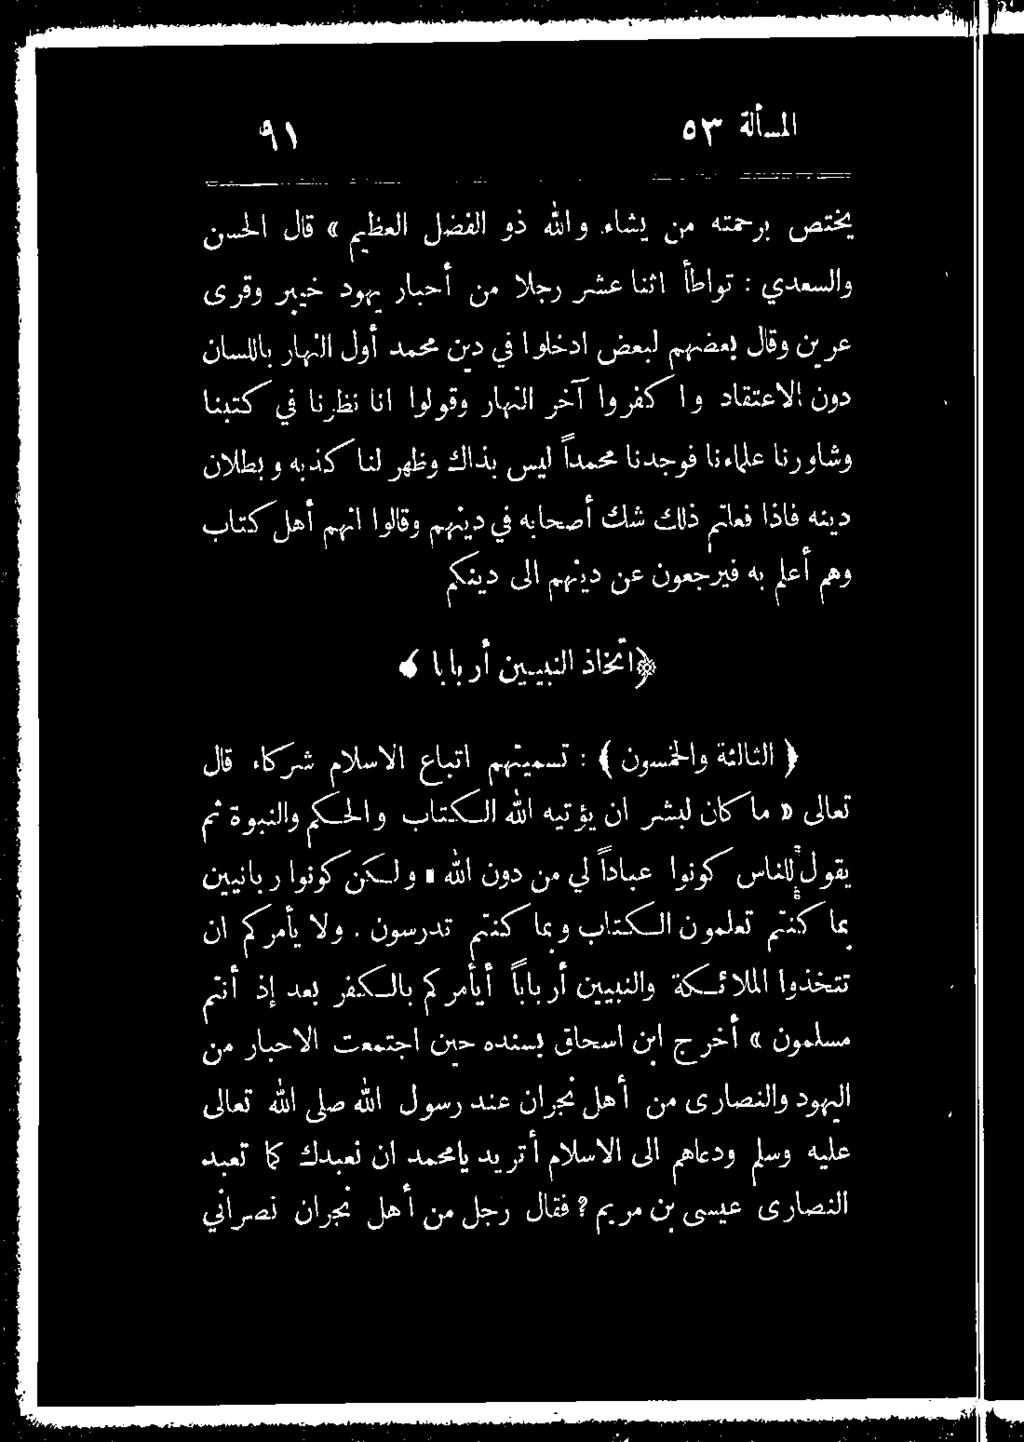 المسألة ٥٣ ٩١
يختص برحمته من يشاء. والله ذو الفضل العظيم » قال الحسن
والسعدي : تواطأ اثنا عشر رجلا من أحبار يهود خيبر وقرى
عرين وقال بعضهم لبعض ادخلوا في دين محمد أول النهار باللسان
دون الاعتقاد واكفروا آخر النهار وقولوا انا نظرنا في كتبنا
وشاورنا علماءنا فوجدنا محمداً ليس بذاك وظهر لنا كذبه وبطلان
دينه فاذا فعلتم ذلك شك أصحابه في دينهم وقالوا انهم أهل كتاب
وهم أعلم به فيرجعون عن دينهم الى دينكم
﴿اتخاذ النبيين أربابا﴾
( الثالثة والخمسون ) : تسميتهم اتباع الاسلام شركاء قال
تعالى « ما كان لبشر ان يؤتيه الله الكتاب والحكم والنبوة ثم
يقول للناس كونوا عباداً لي من دون الله ، ولكن كونوا ربانيين
بما كنتم تعلمون الكتاب وبما كنتم تدرسون . ولا يأمركم ان
تتخذوا الملائكة والنبيين أرباباً أيأمركم بالكفر بعد إذ أنتم
مسلمون » أخرج ابن اسحاق بسنده حين اجتمعت الاحبار من
اليهود والنصارى من أهل نجران عند رسول الله صلى الله تعالى
عليه وسلم ودعاهم الى الاسلام أتريد يامحمد ان نعبدك كما تعبد
النصارى عيسى بن مريم ؟ فقال رجل من أهل نجران نصراني